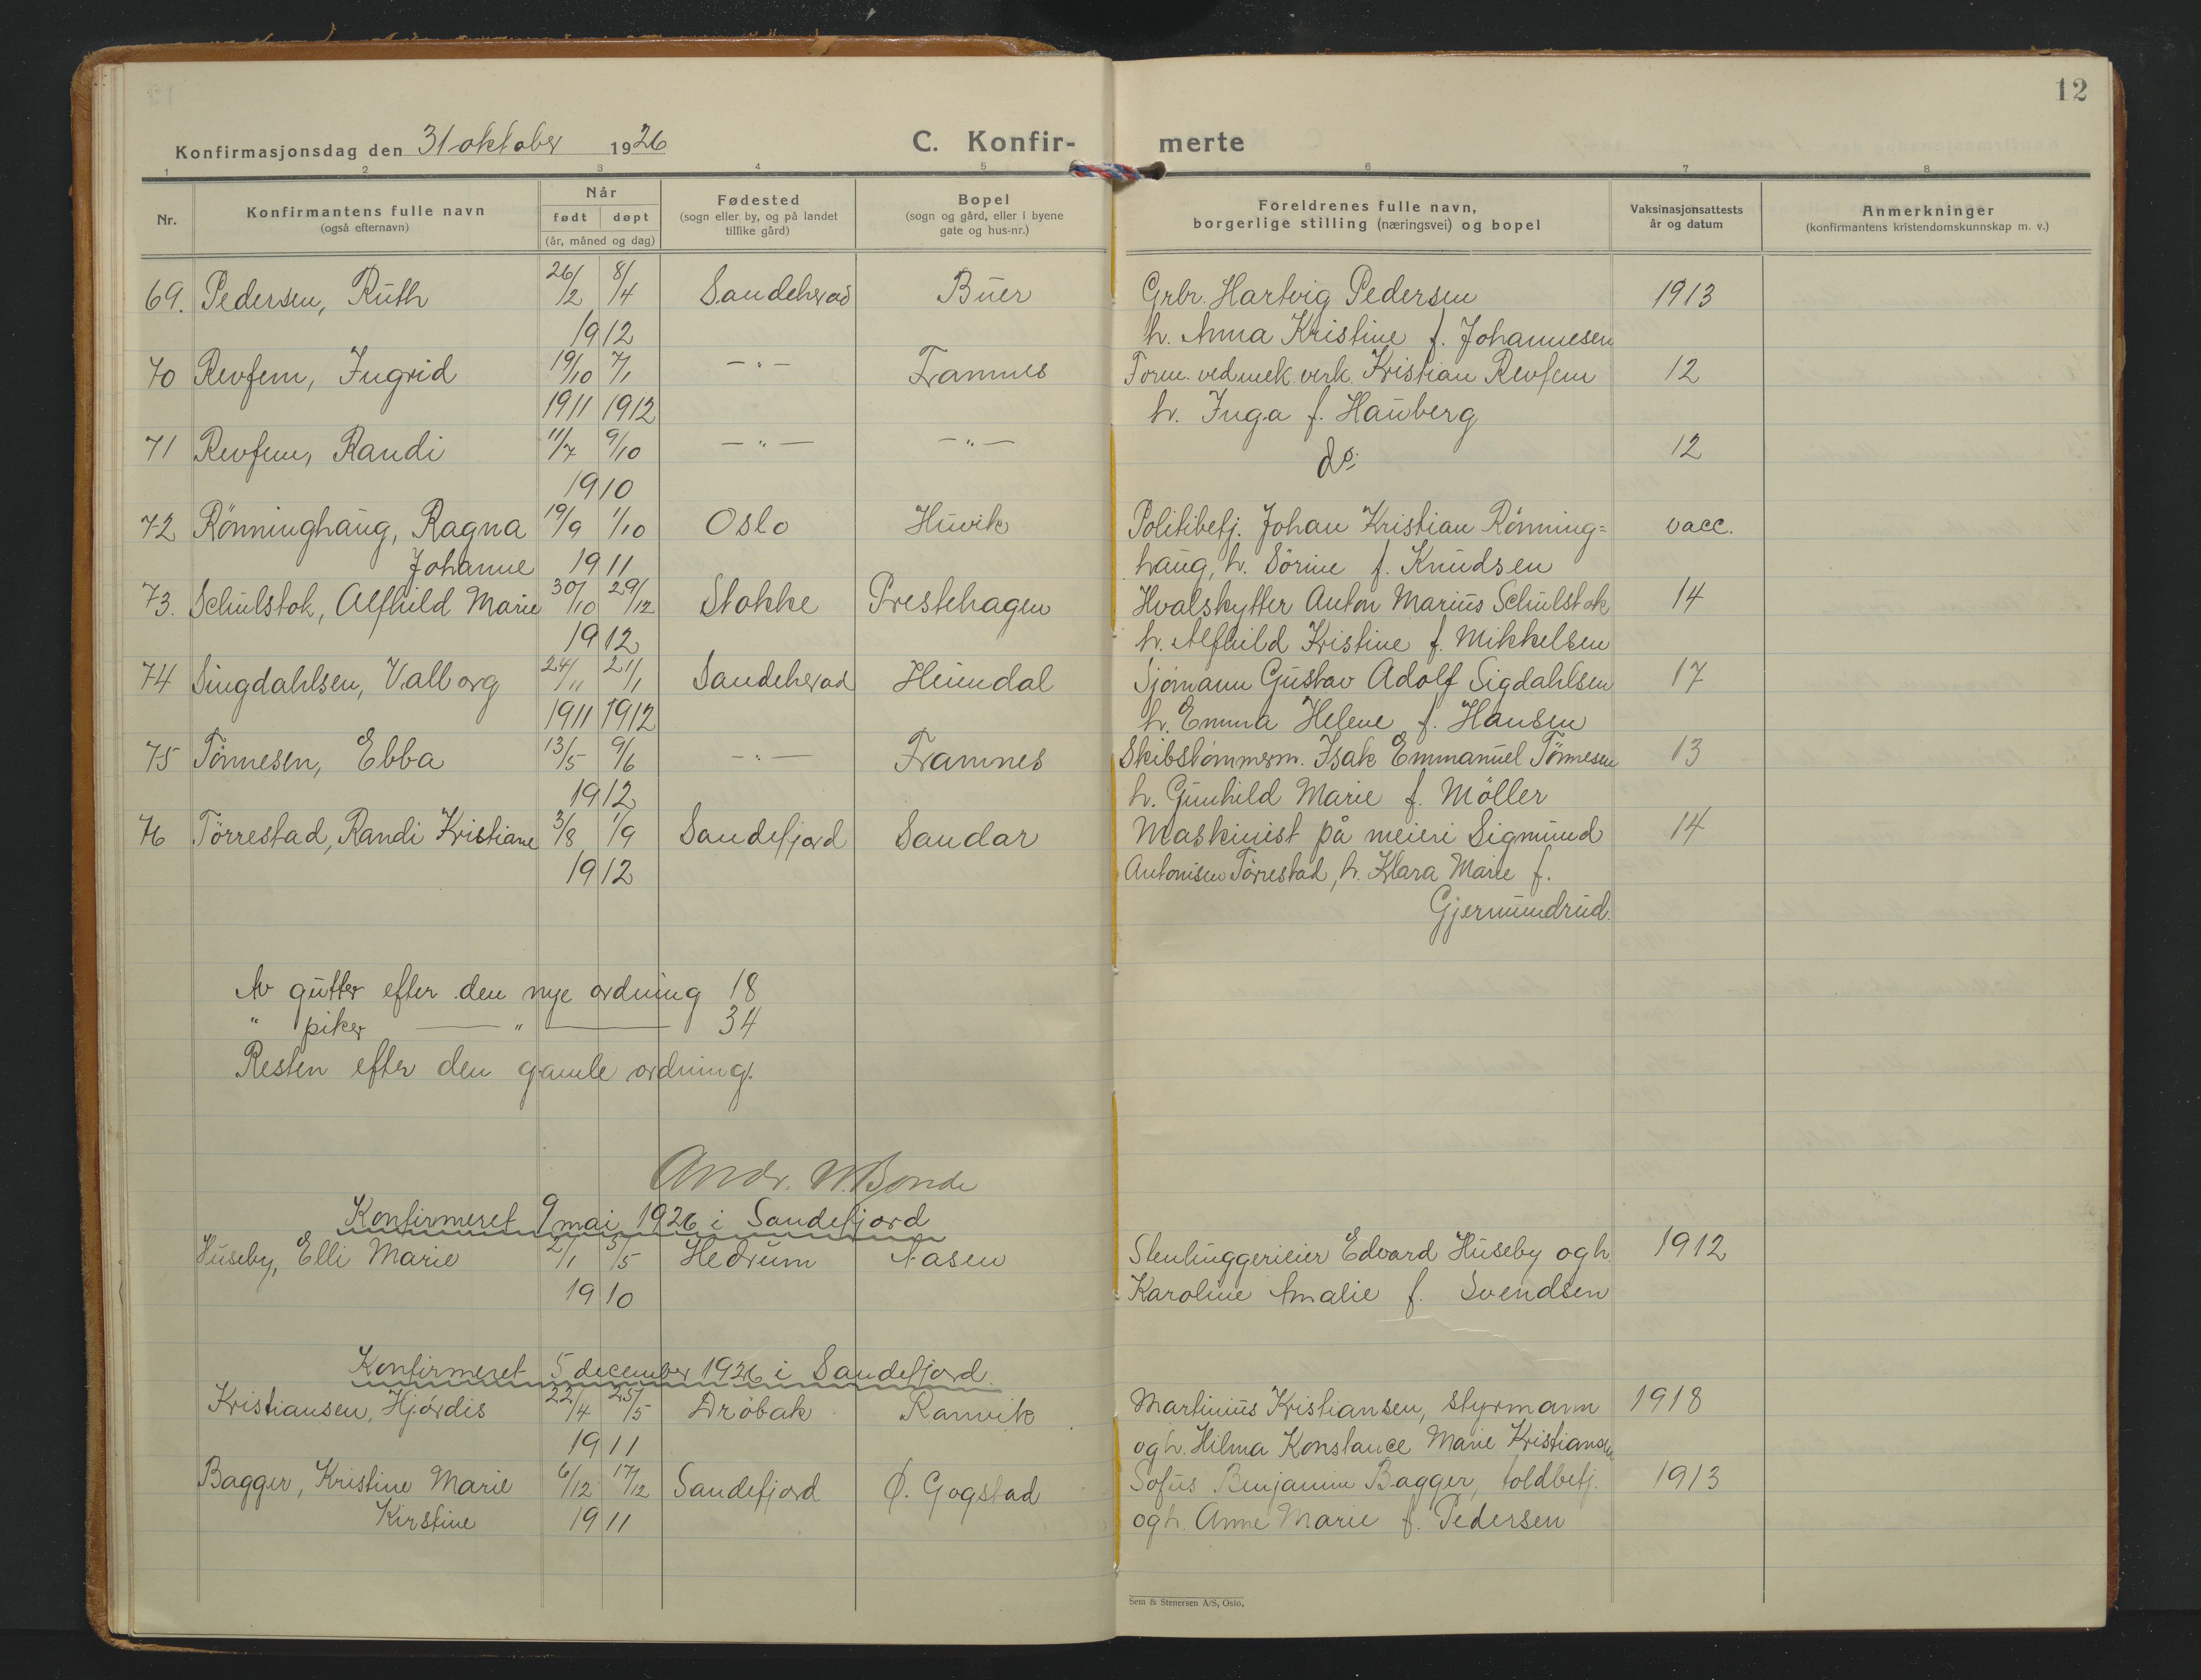 12
Konfirmasjonsdag den 31 oktober 1926 C. Konfir- merte
1 2 3 4 5 6 7 8
Nr. Konfirmantens fulle navn (også efternavn) Når født døpt (år, måned og dag) Fødested (sogn eller by, og på landet tillike gård) Bopel (sogn og gård, eller i byene gate og hus-nr.) Foreldrenes fulle navn, borgerlige stilling (næringsvei) og bopel Vaksinasjonsattests år og datum Anmerkninger (konfirmantens kristendomskunnskap m. v.)
69. Pedersen, Ruth 26/2 8/4 Sandeherad Buer Grbr. Hartvig Pedersen 1913
1912 h. Anna Kristine f. Johannesen
70 Revfem, Ingrid 19/10 7/1 -"- Framnes Form. ved mek. verk. Kristian Revfem 12
1911 1912 h. Inga f. Hauberg
71 Revfem, Randi 11/7 9/10 -"- -"- do. 12
1910
72 Rönninghaug, Ragna 19/9 1/10 Oslo Huvik Politibetj. Johan Kristian Rönning= vacc.
Johanne 1911 haug, h. Sörine f. Knudsen
73. Schulstok, Alfhild Marie 30/10 29/12 Stokke Prestehagen Hvalskytter Anton Marius Schulstok 14
1912 h. Alfhild Kristine f. Mikkelsen
74 Singdahlsen, Valborg 24/11 21/1 Sandeherad Heimdal Sjömann Gustav Adolf Sigdahlsen 17
1911 1912 h. Emma Helene f. Hansen
75 Tönnesen, Ebba 13/5 9/6 -"- Framnes Skibstömmerm. Isak Emmanuel Tönnesen 13
1912 h. Gunhild Marie f. Möller
76 Törrestad, Randi Kristiane 3/8 1/9 Sandefjord Sandar Maskinist på meieri Sigmund 14
1912 Antonisen Törrestad, h. Klara Marie f.
Gjermundrud.
Av gutter efter den nye ordning 18
" piker —— " —— 34
Resten efter den gamle ordning.
Andr. N. Bonde
Konfirmeret 9 mai 1926 i Sandefjord
Huseby, Elli Marie 2/1 5/5 Hedrum Aasen Stenhuggerieier Edvard Huseby og h. 1912
1910 Karoline Amalie f. Svendsen
Konfirmeret 5 december 1926 i Sandefjord.
Kristiansen, Hjördis 22/4 25/5 Dröbak Ranvik Martinius Kristiansen, styrmann 1918
1911 og h. Hilma Konstance Marie Kristiansen
Bagger, Kristine Marie 6/12 17/12 Sandefjord Ø. Gogstad Sofus Benjamin Bagger, toldbetj. 1913
Kirstine 1911 og h. Anne Marie f. Pedersen
Sem & Stenersen A/S, Oslo.